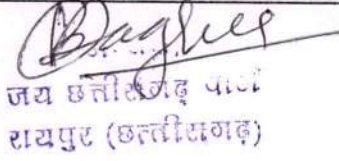 Baghel
जय छत्तीसगढ़ पार्टी
रायपुर (छत्तीसगढ़)